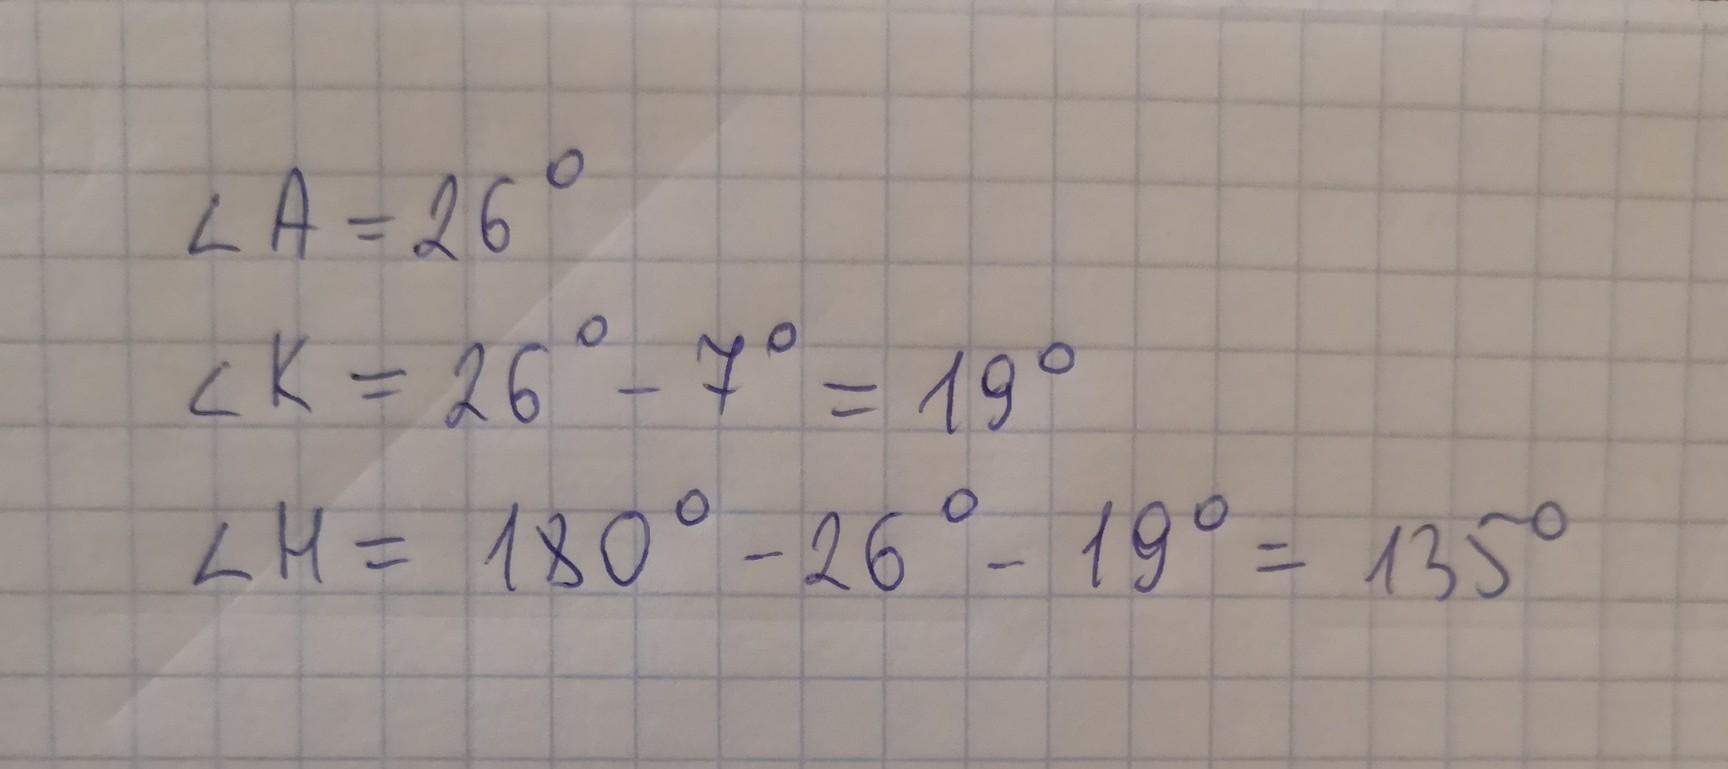 ∠A = 26°
∠K = 26° - 7° = 19°
∠H = 180° - 26° - 19° = 135°